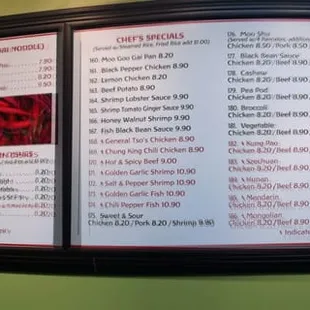 CHEF'S SPECIALS
(Served w/ Steamed Rice, Fried Rice add
160. Moo Goo Gai Pan 8.20
161. Black Pepper Chicken 8.90
162. Lemon Chicken 8.20
163. Beef Potato 8.90
164. Shrimp Lobster Sauce 9.90
165. Shrimp Tomato Ginger Sauce 9.90
166. Honey Walnut Shrimp 9.90
167. Fish Black Bean Sauce 9.90
168. General Tso's Chicken 8.90
169. Chung King Chili Chicken 8.90
170. Hot & Spicy Beef 9.00
171. Golden Garlic Shrimp 10.90
172. Salt & Pepper Shrimp 10.90
173. Golden Garlic Fish 10.90
174. Chili Pepper Fish 10.90
175. Sweet & Sour
Chicken 8.20/Pork 8.20/Shrimp 9.90
176. Moo Shu
(Served w/4 Pancakes, additional
Chicken 8.50/Pork 8.50
177. Black Bean Sauce
Chicken 8.20/Beef 8.90
178. Cashew
Chicken 8.20/Beef 8.90
179. Pea Pod
Chicken 8.20/Beef 8.90
180. Broccoli
Chicken 8.20/Beef 8.90
181. Vegetable
Chicken 8.20/Beef 8.90
182. Kung Pao
Chicken 8.20/Beef 8.90
183. Szechuan
Chicken 8.20/Beef 8.90
184. Hunan
Chicken 8.20/Beef 8.90
185. Mandarin
Chicken 8.20/Beef 8.90
186. Mongolian
Chicken 8.20/Beef 8.90
Indicates
NOODLE)
7.90